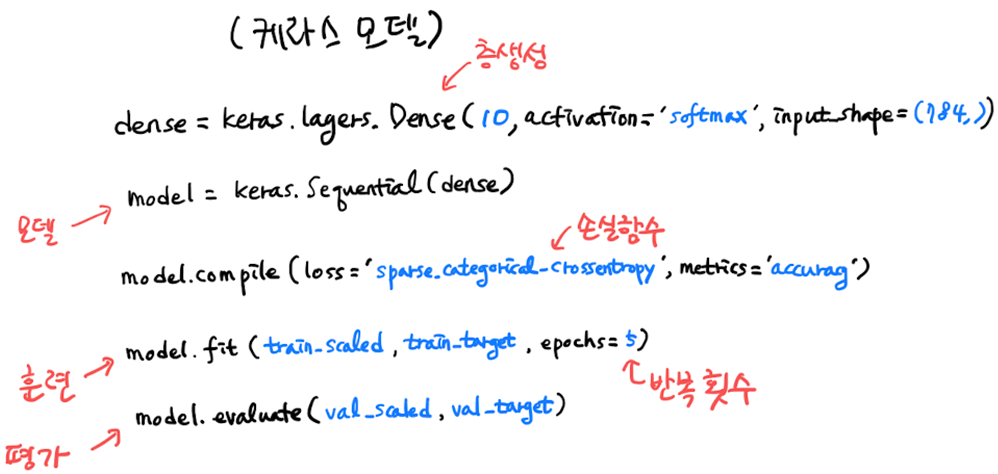 (케라스 모델)
층생성
dense = keras.layers.Dense(10, activation='softmax', input_shape=(784,))
모델
model = keras.Sequential(dense)
손실함수
model.compile(loss='sparse_categorical_crossentropy', metrics='accuracy')
훈련
model.fit(train_scaled, train_target, epochs=5)
반복 횟수
평가
model.evaluate(val_scaled, val_target)